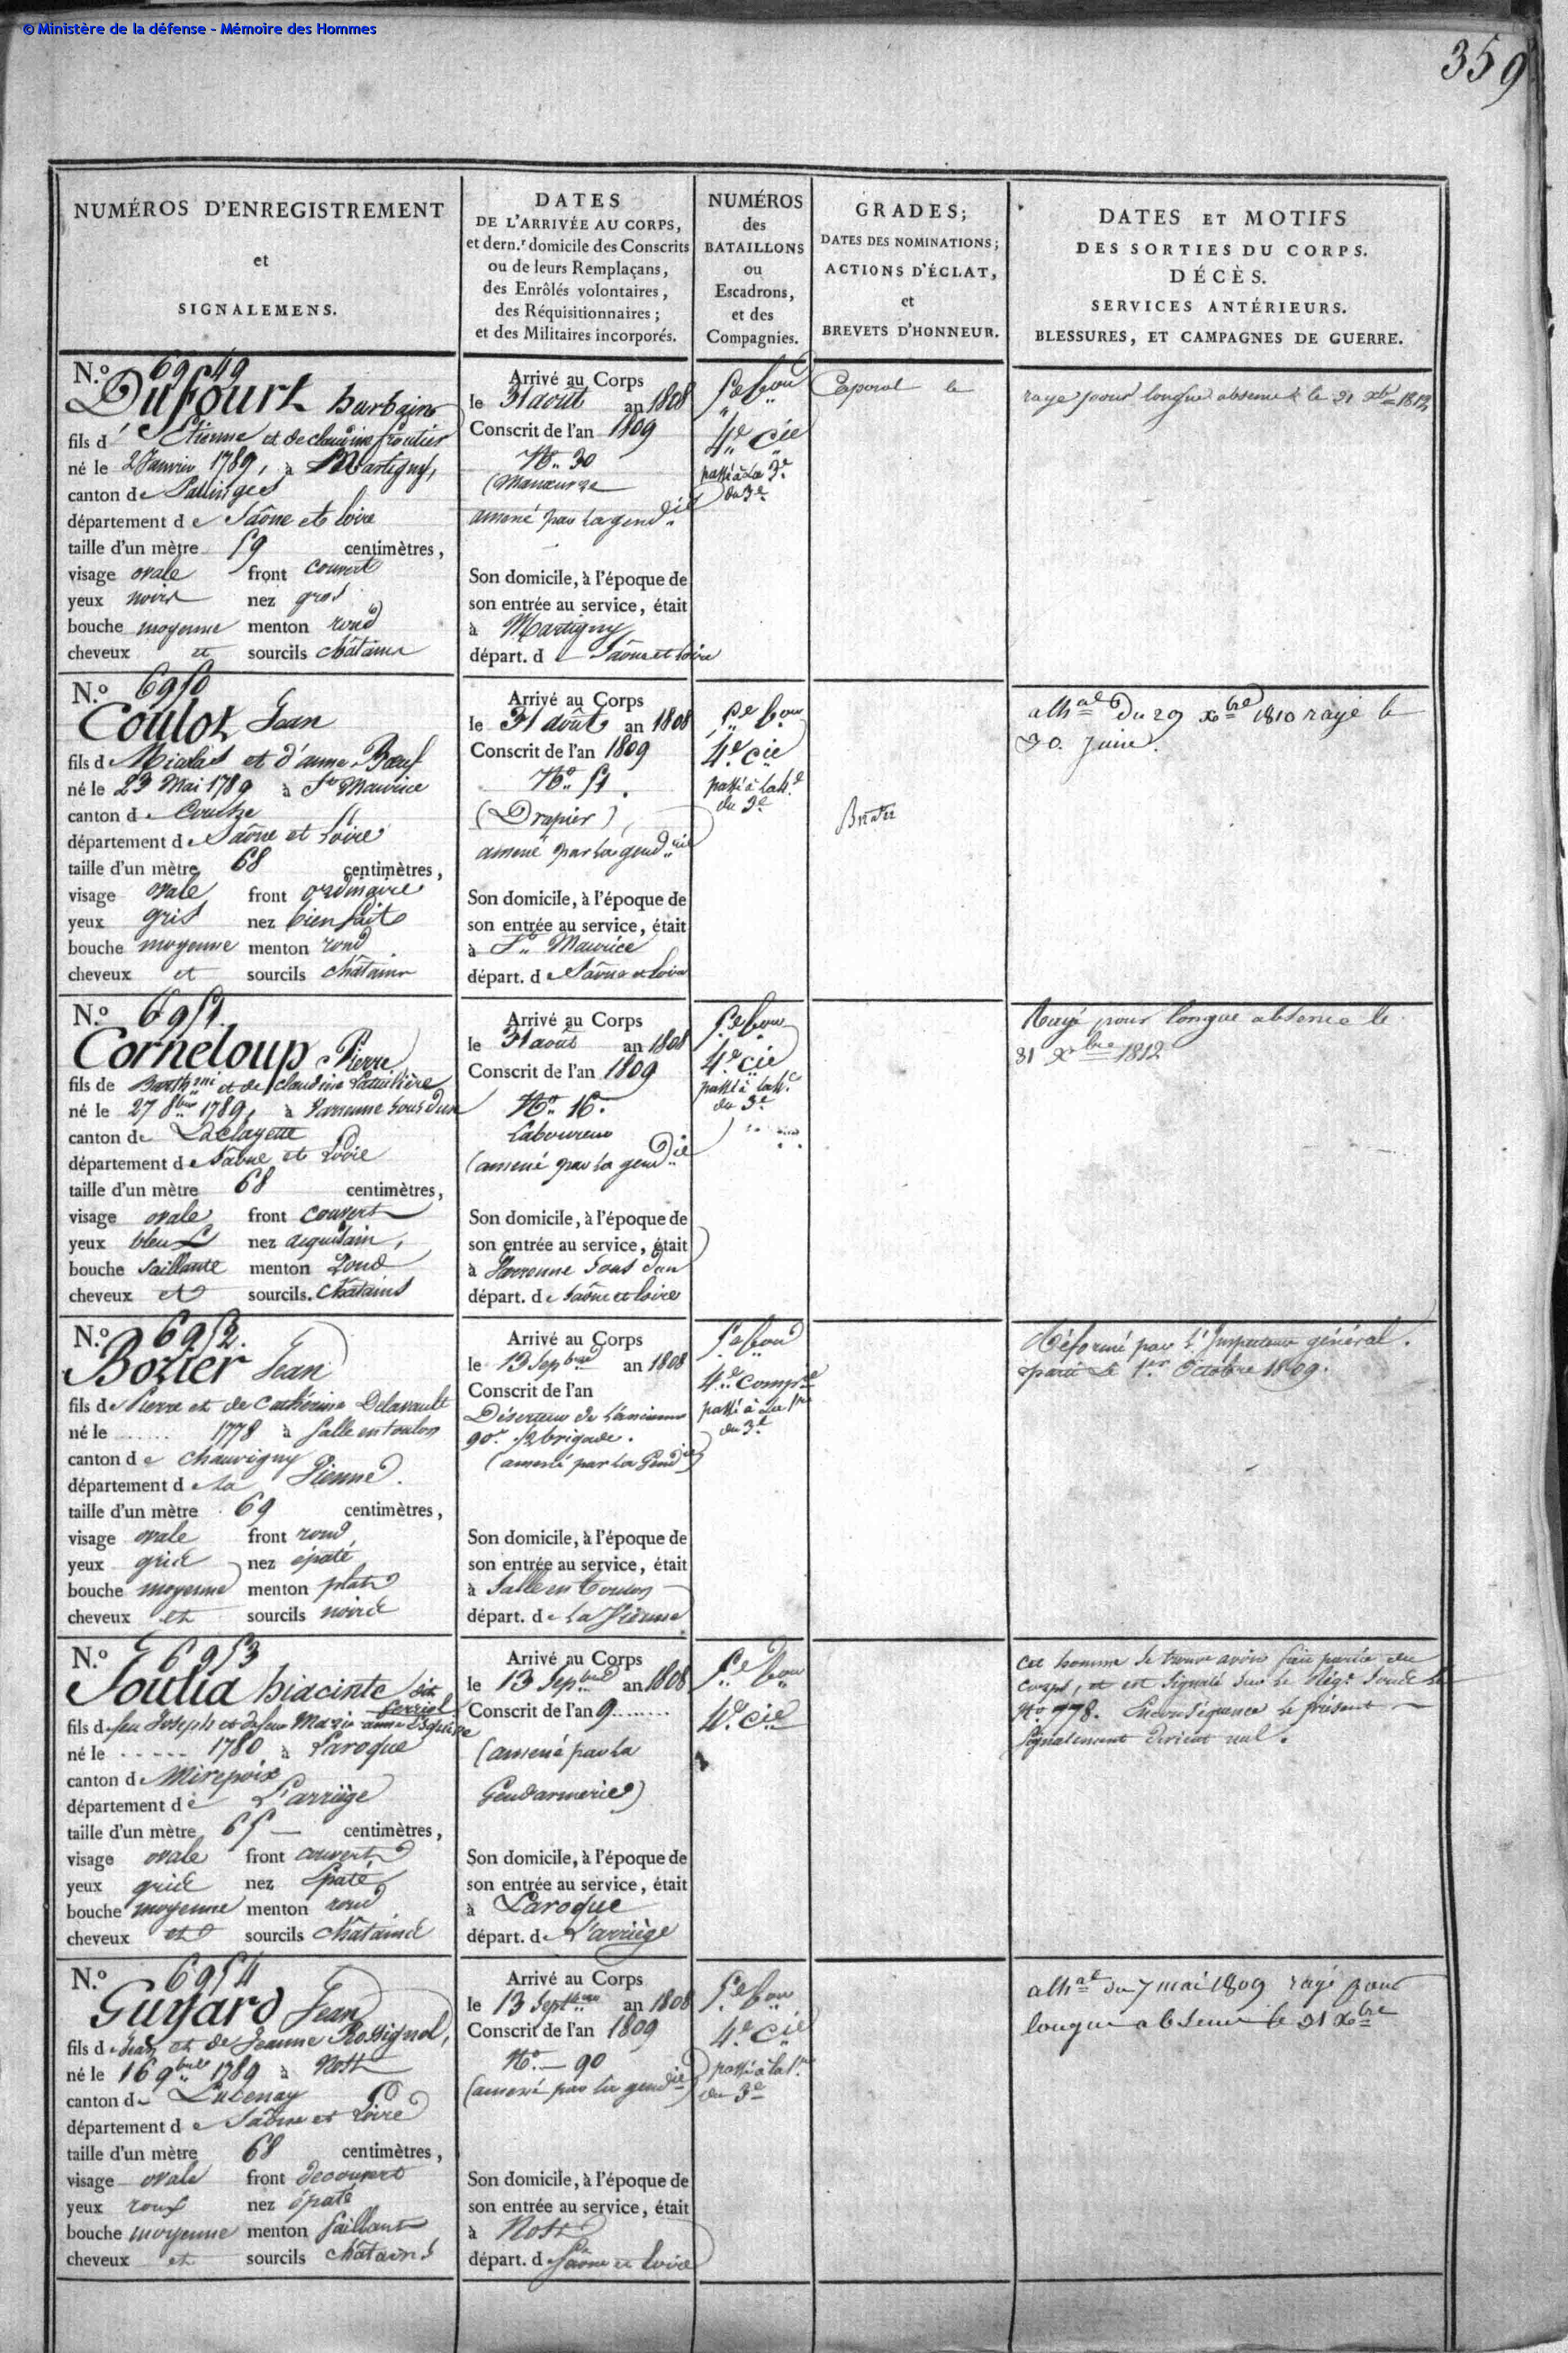 © Ministère de la défense - Mémoire des Hommes
359
NUMÉROS D'ENREGISTREMENT
et
SIGNALEMENS.
DATES
DE L'ARRIVÉE AU CORPS,
et dern.r domicile des Conscrits
ou de leurs Remplaçans,
des Enrôlés volontaires,
des Réquisitionnaires;
et des Militaires incorporés.
NUMÉROS
des
BATAILLONS
ou
Escadrons,
et des
Compagnies.
GRADES;
DATES DES NOMINATIONS;
ACTIONS D'ÉCLAT,
et
BREVETS D'HONNEUR.
DATES ET MOTIFS
DES SORTIES DU CORPS.
DÉCÈS.
SERVICES ANTÉRIEURS.
BLESSURES, ET CAMPAGNES DE GUERRE.
N.o 6949
Dufourt
fils d' Etienne et de claudine
né le 2 Janvier 1789, à Martigny,
canton de Palinges
département de Saône et Loire
taille d'un mètre 59 centimètres,
visage ovale front couvert
yeux noirs nez gros
bouche moyenne menton rond
cheveux et sourcils châtains
Arrivé au Corps
le 31 août an 1808
Conscrit de l'an 1809
No. 30
(Manœuvre
amené par la gend.ie
Son domicile, à l'époque de
son entrée au service, était
à Martigny
départ. de Saône et Loire
5e bon
4e cie
passé à la 3e
du 3e
Caporal le
rayé pour longue absence le 31 xbre 1812
N.o 6950
Coulot Jean
fils de et d'anne Bœuf
né le 23 Mai 1789 à St Maurice
canton de Couche
département de Saône et Loire
taille d'un mètre 68 centimètres,
visage ovale front ordinaire
yeux gris nez bien fait
bouche moyenne menton rond
cheveux et sourcils châtains
Arrivé au Corps
le 31 août an 1808
Conscrit de l'an 1809
No. 51.
(Drapier),
amené par la gend.rie
Son domicile, à l'époque de
son entrée au service, était
à St. Maurice
départ. de Saône et Loire
5e bon
4e cie
passé à la 4.e
du 3e
alh.al du 29 xbre 1810 rayé le
30. Juin.
N.o 6951
Corneloup Pierre
fils de Barth.mi et de Claudine
né le 27 8bre 1789, à Varenne sous dun
canton de Laclayette
département de Saône et Loire
taille d'un mètre 68 centimètres,
visage ovale front couvert
yeux bleus nez aquilain,
bouche saillante menton rond
cheveux et sourcils. Châtains
Arrivé au Corps
le 31 août an 1808
Conscrit de l'an 1809
No. 16.
Laboureur
(amené par la gend.ie
Son domicile, à l'époque de
son entrée au service, était
à Varenne sous dun
départ. de Saône et Loire
5e bon
4e cie
passé à la 4.e
du 3e
Rayé pour longue absence le
31 xbre 1812
N.o 6952.
Bozier Jean
fils de Pierre et de Cathérine Delavault
né le ...... 1778 à Salle en toulon
canton de Chauvigny
département de la Vienne.
taille d'un mètre 69 centimètres,
visage ovale front rond
yeux gris nez épaté
bouche moyenne menton plat
cheveux et sourcils noirs
Arrivé au Corps
le 13 Sepbre an 1808
Conscrit de l'an
Déserteur de l'ancienne
90e. 1/2 brigade.
(amené par la Gend.ie)
Son domicile, à l'époque de
son entrée au service, était
à Salle en Toulon
départ. de la Vienne
5e bon
4e comp.ie
passé à la 1re
du 3e
Réformé par l'Inspecteur général.
parti le 1er. Octobre 1809.
N.o 6953
Soulia hiacinte dit
ferriol
fils de feu Joseph et de feu Marie anne
né le ..... 1780 à Laroque
canton de Mirepoix
département de L'arriège
taille d'un mètre 65 — centimètres,
visage ovale front couvert
yeux gris nez épaté
bouche moyenne menton rond
cheveux et sourcils châtains
Arrivé au Corps
le 13 Sepbre an 1808
Conscrit de l'an 9........
(amené par la
Gendarmerie)
Son domicile, à l'époque de
son entrée au service, était
à Laroque
départ. de L'arriège
5e bon
4e cie
Cet homme se trouve avoir fait partie du
corps, et est signalé sur le Reg.e sous le
No. 778. En conséquence le présent
signalement devient nul.
N.o 6954
Guyard Jean
fils de Jean et de Jeanne Rossignol,
né le 16 9bre 1789 à
canton de Lucenay
département de Saône et Loire
taille d'un mètre 68 centimètres,
visage ovale front découvert
yeux roux nez épaté
bouche moyenne menton saillant
cheveux et sourcils châtains
Arrivé au Corps
le 13 Septbre an 1808
Conscrit de l'an 1809
No. — 90
(amené par la gend.ie)
Son domicile, à l'époque de
son entrée au service, était
à
départ. de Saône et Loire
5e bon
4e cie
passé à la 1re.
du 3e
alh.al du 7 mai 1809 rayé pour
longue absence le 31 xbre